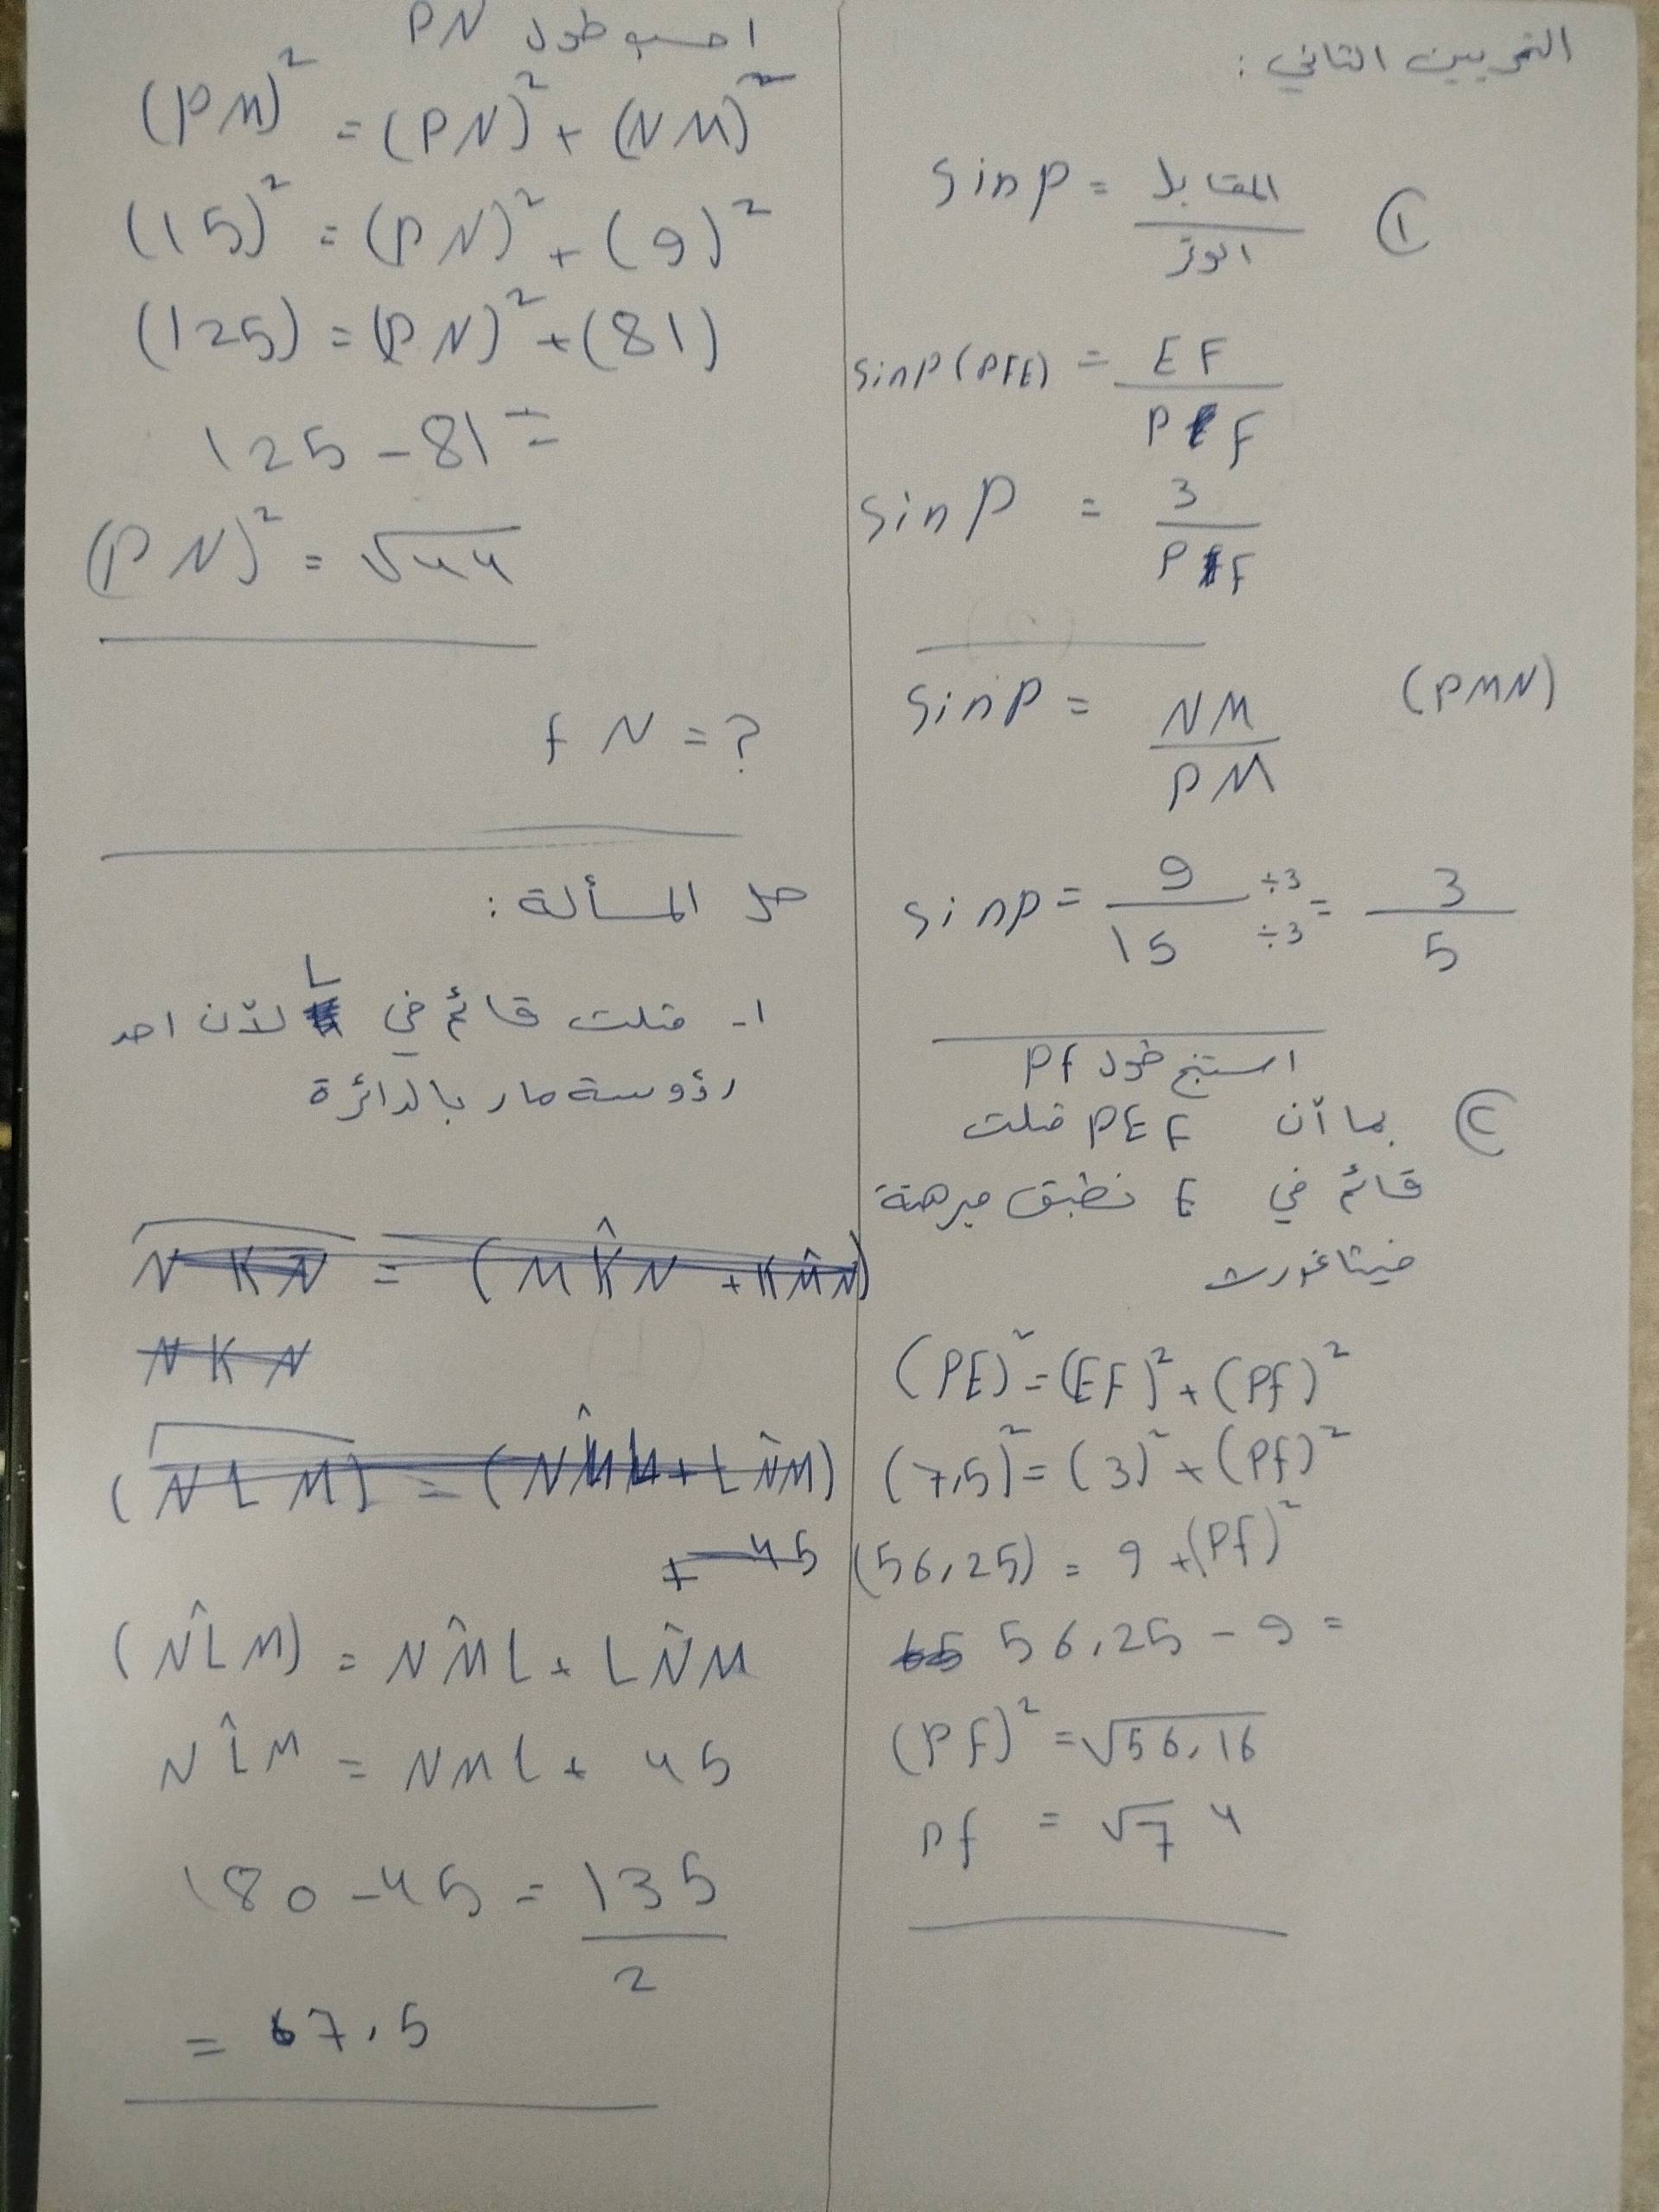 التمرين الثاني :
① sin P = المقابل / الوتر
sin P (PFE) = EF / PF
sin P = 3 / PF
sin P = NM / PM (PMN)
sin P = 9 / 15 ÷3 ÷3 = 3 / 5
استنتج طول Pf
② بما أن PEF مثلث
قائم في E نطبق مبرهنة
فيثاغورث
(PE)² = (EF)² + (Pf)²
(7,5)² = (3)² + (Pf)²
(56,25) = 9 + (Pf)²
56,25 - 9 =
(Pf)² = √56,16
Pf = √7 4
احسب طول PN
(PM)² = (PN)² + (NM)²
(15)² = (PN)² + (9)²
(125) = (PN)² + (81)
125 - 81 =
(PN)² = √44
fN = ?
حل المسألة :
1- مثلث قائم في L لأن احد
رؤوسه مار بالدائرة
NKN = (MK̂N + KM̂N)
NKN
(NLM) = (NM̂L + LN̂M)
+ 45
(NL̂M) = NM̂L + LN̂M
NL̂M = NML + 45
180 - 45 = 135 / 2
= 67,5